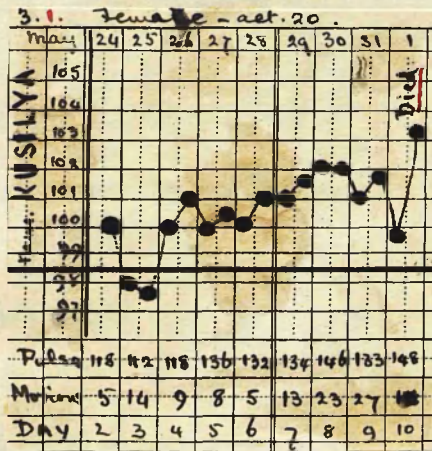 3.1. Female - aet. 20.
May 24 25 26 27 28 29 30 31 1
KUSILYA
Temp.
105
104
103
102
101
100
99
98
97
Died
Pulse 118 112 118 136 132 134 146 133 148
Motions 5 14 9 8 5 13 23 27
DAY 2 3 4 5 6 7 8 9 10